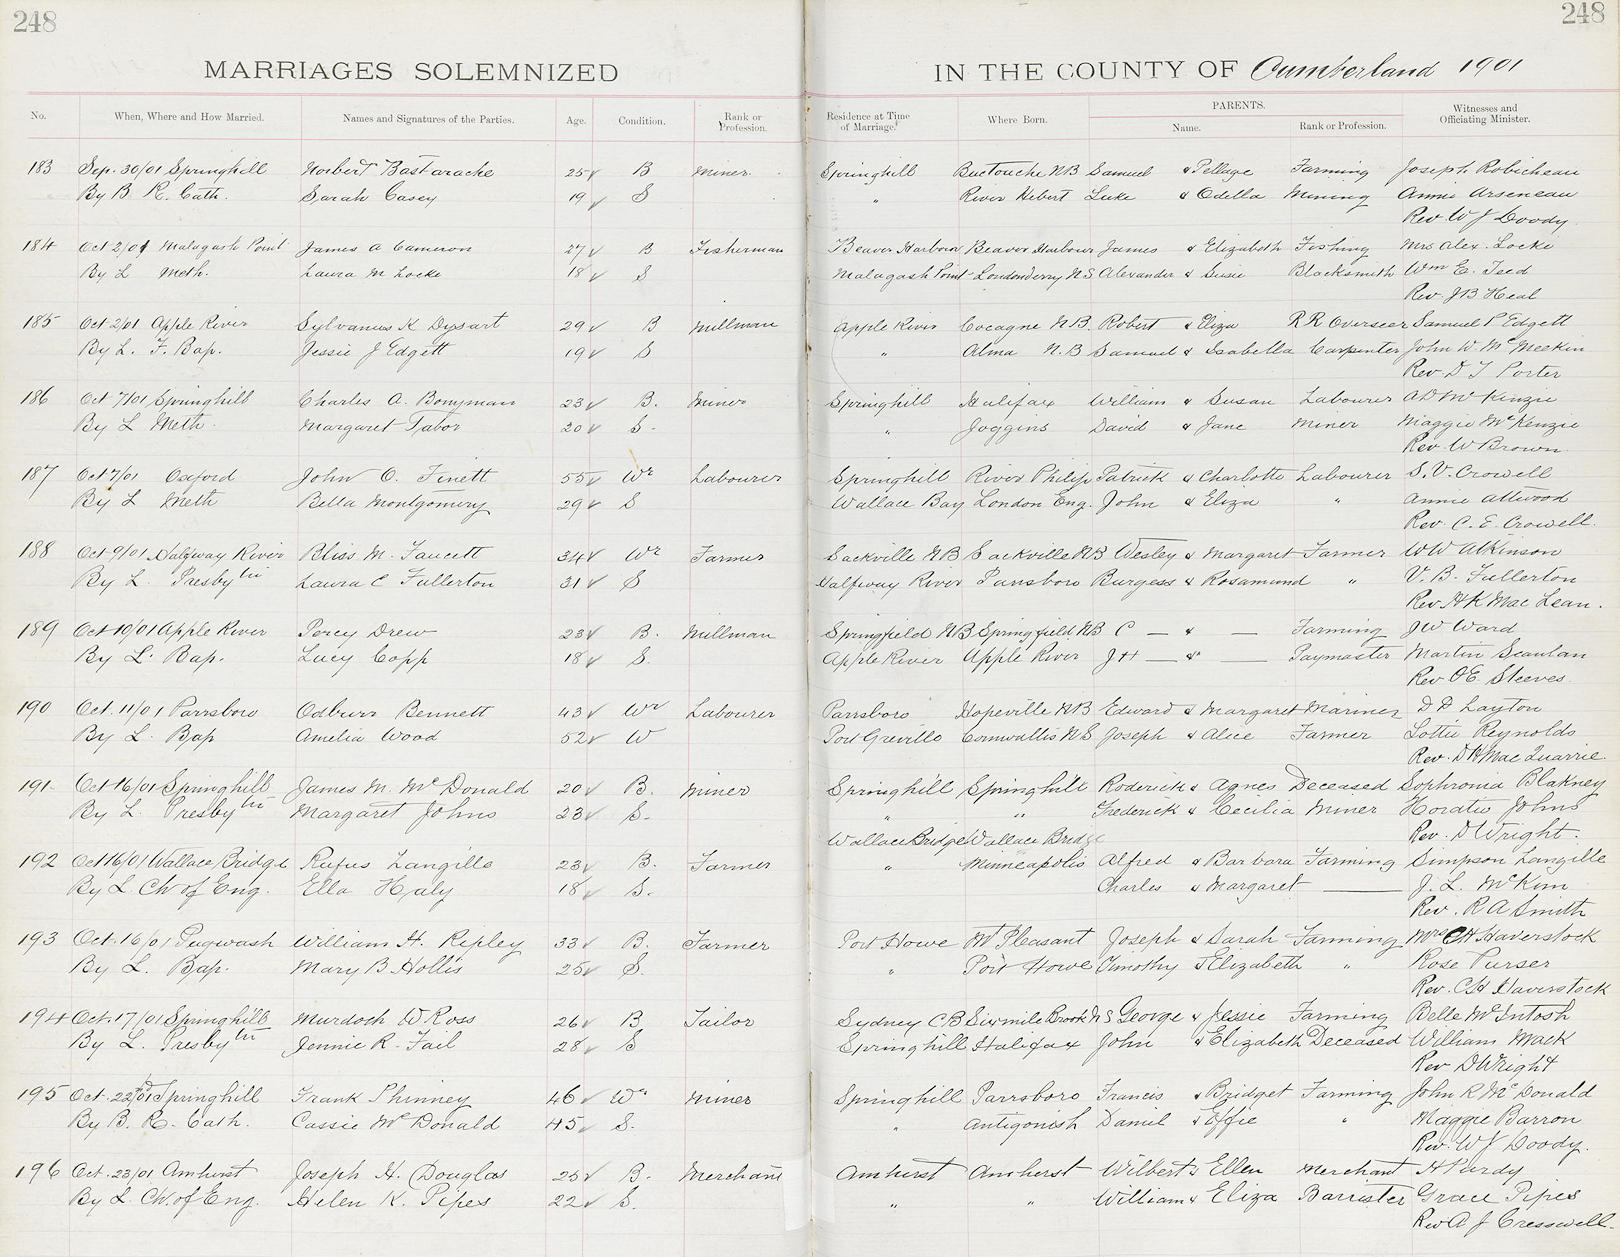 248 248
MARRIAGES SOLEMNIZED IN THE COUNTY OF Cumberland 1901
No. When, Where and How Married. Names and Signatures of the Parties. Age. Condition. Rank or Profession. Residence at Time of Marriage. Where Born. PARENTS. Name. Rank or Profession. Witnesses and Officiating Minister.
183 Sep. 30/01 Springhill Norbert Bastarache 25 B Miner Springhill Buctouche N.B Samuel & Pellage Farming Joseph Robicheau
By B. R. Cath. Sarah Casey 19 S " River Hebert Luke & Odella Mining Annie Arseneau
Rev. W J Doody
184 Oct 2/01 Malagash Point James A Cameron 27 B Fisherman Beaver Harbour Beaver Harbour James & Elizabeth Fishing Mrs Alex. Locke
By L Meth. Laura M Locke 18 S Malagash Point Londonderry N.S Alexander & Susie Blacksmith Wm E. Teed
Rev. J B Heal
185 Oct 2/01 Apple River Sylvanus K Dysart 29 B Millman Apple River Cocagne N.B. Robert & Eliza R R Overseer Samuel P Edgett
By L. F. Bap. Jessie J Edgett 19 S " Alma N.B Samuel & Isabella Carpenter John W McMeekin
Rev D T Porter
186 Oct 7/01 Springhill Charles A. Bonyman 23 B. Miner Springhill Halifax William & Susan Labourer A D McKinzie
By L Meth. Margaret Tabor 20 S. " Joggins David & Jane Miner Maggie McKenzie
Rev. W Brown
187 Oct 7/01 Oxford John O. Finett 55 Wr Labourer Springhill River Philip Patrick & Charlotte Labourer S. V. Crowell
By L Meth Bella Montgomery 29 S Wallace Bay London Eng. John & Eliza " Annie Atwood
Rev. C. E. Crowell.
188 Oct 9/01 Halfway River Bliss M. Faucett 34 Wr Farmer Sackville N.B Sackville N.B Wesley & Margaret Farmer W W Atkinson
By L. Presbytri Laura C Fullerton 31 S Halfway River Parrsboro Burgess & Rosamund " V. B. Fullerton
Rev. H K Mac Lean.
189 Oct 10/01 Apple River Percy Drew 23 B. Millman Springfield N.B Springfield N.B C — & — Farming J W Ward
By L. Bap. Lucy Copp 18 S. Apple River Apple River J H — & — Paymaster Martin Scanlan
Rev O E. Steeves.
190 Oct. 11/01 Parrsboro Odburr Bennett 43 Wr Labourer Parrsboro Hopeville N.B Edward & Margaret Mariner D D Layton
By L. Bap Amelia Wood 52 W Port Greville Cornwallis N.S Joseph & Alice Farmer Lottie Reynolds
Rev. D H Mac Quarrie.
191 Oct 16/01 Springhill James M. McDonald 20 B. Miner Springhill Springhill Roderick & Agnes Deceased Sophronia Blakney
By L. Presbytri Margaret Johns 23 S. " " Frederick & Cecilia Miner Horatio Johns
Wallace Bridge Wallace Bridge Rev. D Wright.
192 Oct 16/01 Wallace Bridge Rufus Langille 23 B. Farmer " Minneapolis Alfred & Barbara Farming Simpson Langille
By L. Ch. of Eng. Ella Haly 18 S. Charles & Margaret — J. L. McKim
Rev. R A Smith
193 Oct. 16/01 Pugwash William H. Ripley 33 B. Farmer Port Howe Mt Pleasant Joseph & Sarah Farming Mrs C H Haverstock
By L. Bap. Mary B Hollis 25 S. " Port Howe Timothy & Elizabeth " Rose Purser
Rev. C H Haverstock
194 Oct. 17/01 Springhill Murdoch W Ross 26 B Tailor Sydney C B Six mile Brook N S George & Jessie Farming Belle McIntosh
By L. Presbytri Jennie R. Fail 28 S Springhill Halifax John & Elizabeth Deceased William Mack
Rev D Wright
195 Oct. 22nd/01 Springhill Frank Phinney 46 Wr Miner Springhill Parrsboro Francis & Bridget Farming John R McDonald
By B. R. Cath. Cassie McDonald 45 S. " Antigonish Daniel & Effie " Maggie Barron
Rev. W J Doody.
196 Oct. 23/01 Amherst Joseph H. Douglas 25 B. Merchant Amherst Amherst Wilbert & Ellen Merchant H Purdy
By L. Ch. of Eng. Helen K. Pipes 22 S. " " William & Eliza Barrister Grace Pipes
Rev A J Cresswell.